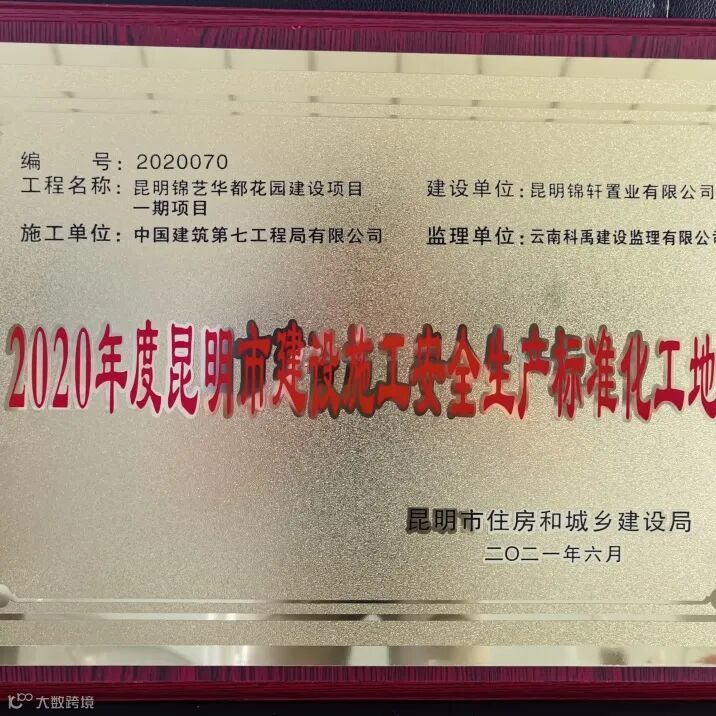 编 号: 2020070
工程名称: 昆明锦艺华都花园建设项目 建设单位: 昆明锦轩置业有限公司
一期项目
施工单位: 中国建筑第七工程局有限公司 监理单位: 云南科禹建设监理有限公司
2020年度昆明市建设施工安全生产标准化工地
昆明市住房和城乡建设局
二〇二一年六月
大数跨境